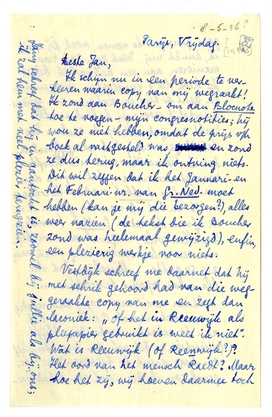 8-5-36?
Parijs, Vrijdag.
Beste Jan,
Ik schijn nu in een periode te ver-
keeren waarin copy van mij wegraakt!
Ik zond aan Boucher – om aan Blocnote
toe te voegen – mijn congresnotities; hij
wou ze niet hebben, omdat de prijs v/h
boek al vastgesteld was en zond
ze dus terug, maar ik ontving niets.
Dit wil zeggen dat ik het Januari- en
het Februari-nr. van Gr. Ned. moet
hebben (kan je mij die bezorgen?), alles
weer nazien (de tekst die ik Boucher
zond was heelemaal gewijzigd), enfin,
een plezierig werkje voor niets.
Vestdijk schreef me daarnet dat hij
met schrik gehoord had van die weg-
geraakte copy van me en zegt dan
laconiek: „of het in Reeuwijk als
pleepapier gebruikt is weet ik niet".
Wat is Reeuwijk (of Reenwijk?)?
Het oord van het mensch Raedt? Maar
hoe het zij, wij hoeven daarmee toch
Jany schreef dat hij in aantocht is, zoowel bij jullie als bij ons;
ik zal hem met veel plezier terugzien.